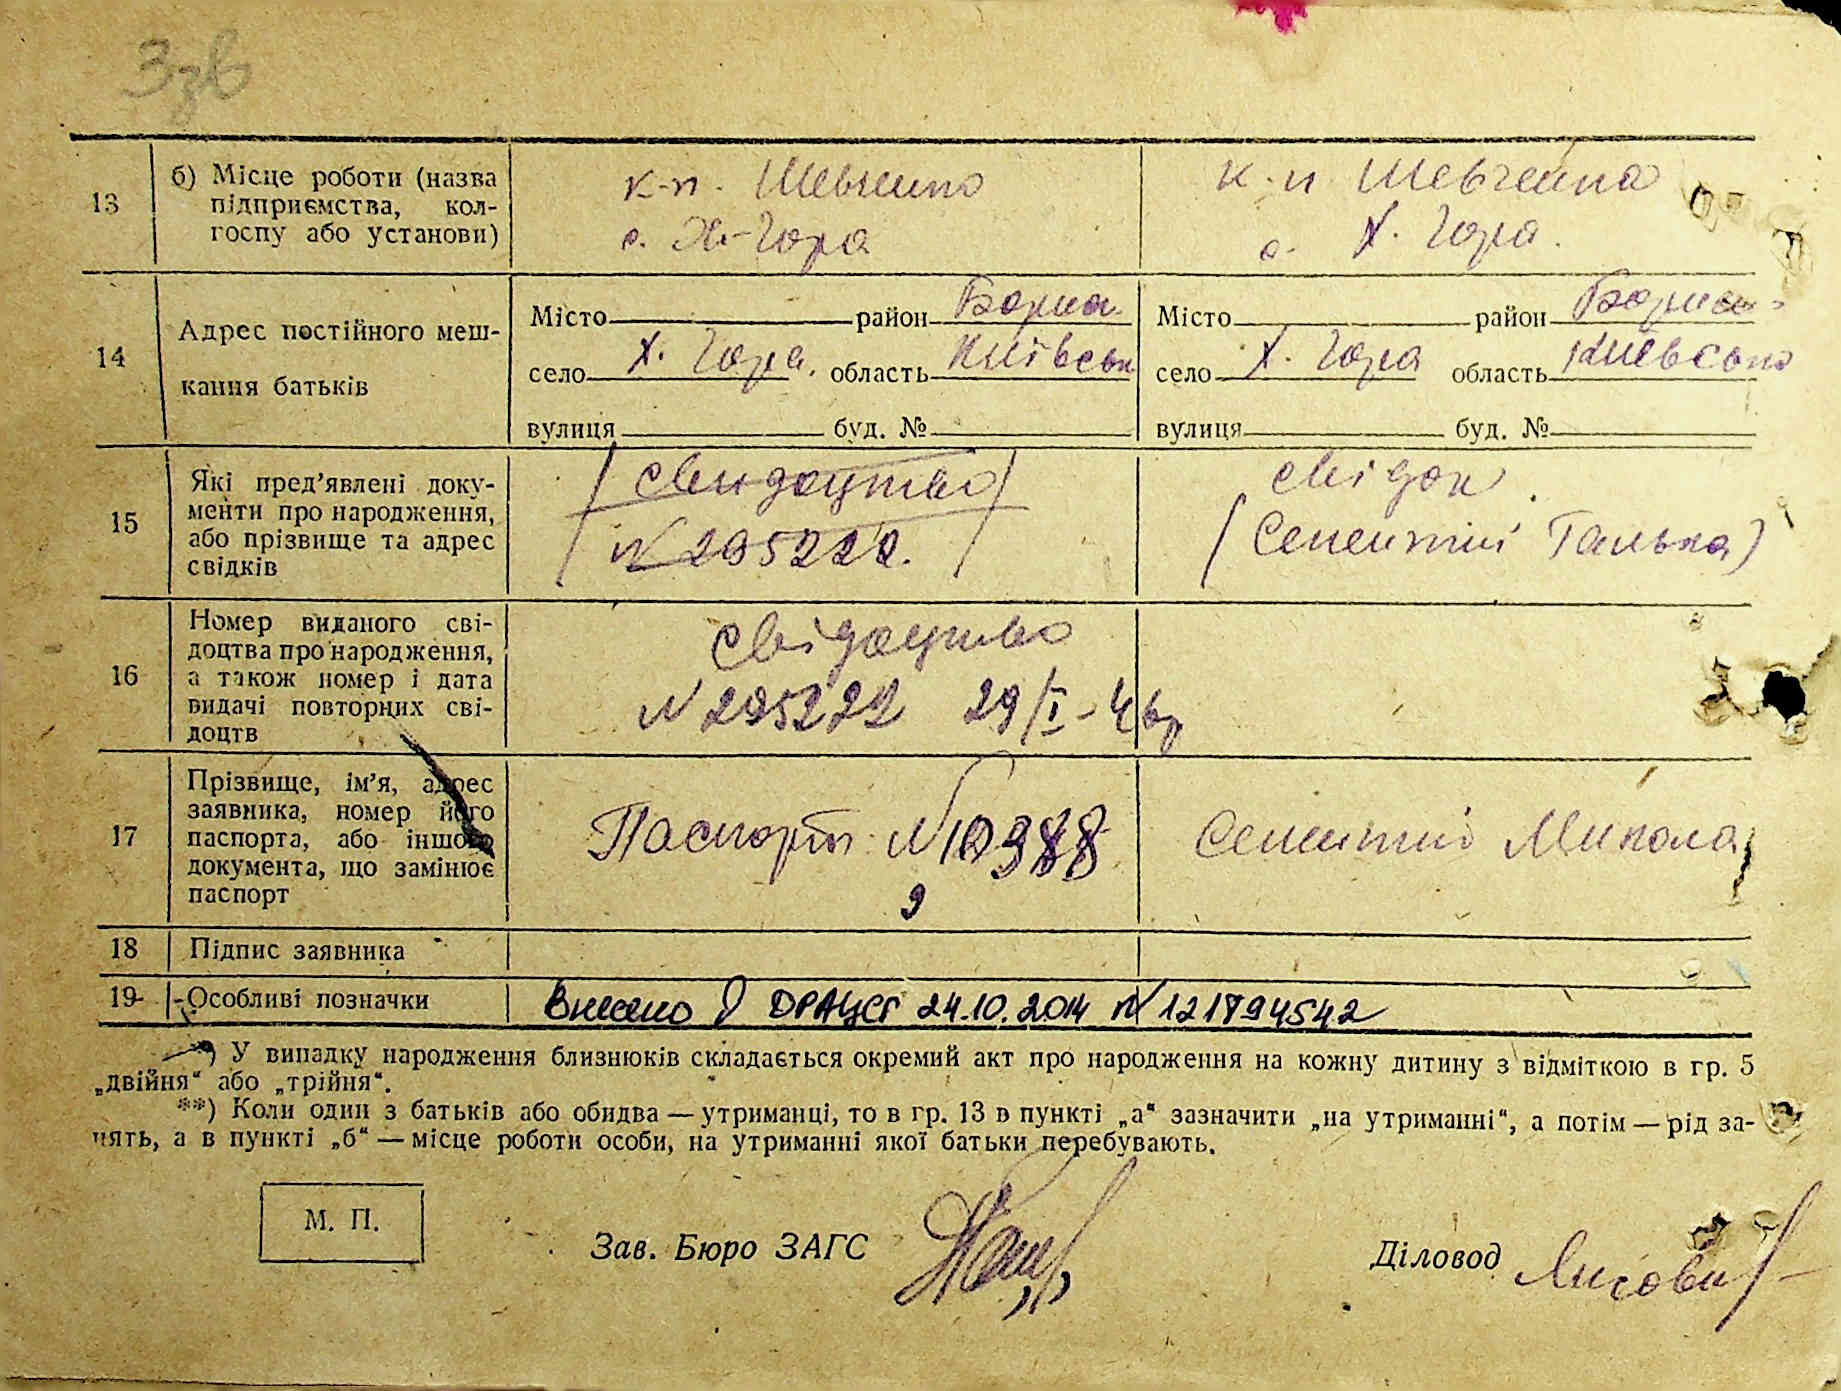 Ззв
13
б) Місце роботи (назва
підприємства, кол-
госпу або установи)
к-п. Шевченко
с. Х-Гора
к-п Шевченка
с. Х. Гора.
14
Адрес постійного меш-
кання батьків
Місто район
село Х. Гора. область Київськ
вулиця буд. №
Місто район
село Х. Гора область Київсько
вулиця буд. №
15
Які пред’явлені доку-
менти про народження,
або прізвище та адрес
свідків
свидоцтво
N 295222.
свідок.
(Сементій Галька)
16
Номер виданого сві-
доцтва про народження,
а також номер і дата
видачі повторних сві-
доцтв
свідоцтво
N 295222 29/I-46р
17
Прізвище, ім’я, адрес
заявника, номер його
паспорта, або іншого
документа, що замінює
паспорт
Паспорт N
Сементій Микола
18
Підпис заявника
19
Особливі позначки
Внесено до ДРАЦСГ 24.10.2014 N 121794542
*) У випадку народження близнюків складається окремий акт про народження на кожну дитину з відміткою в гр. 5
„двійня“ або „трійня“.
**) Коли один з батьків або обидва — утриманці, то в гр. 13 в пункті „а“ зазначити „на утриманні“, а потім — рід за-
нять, а в пункті „б“ — місце роботи особи, на утриманні якої батьки перебувають.
М. П.
Зав. Бюро ЗАГС
Діловод